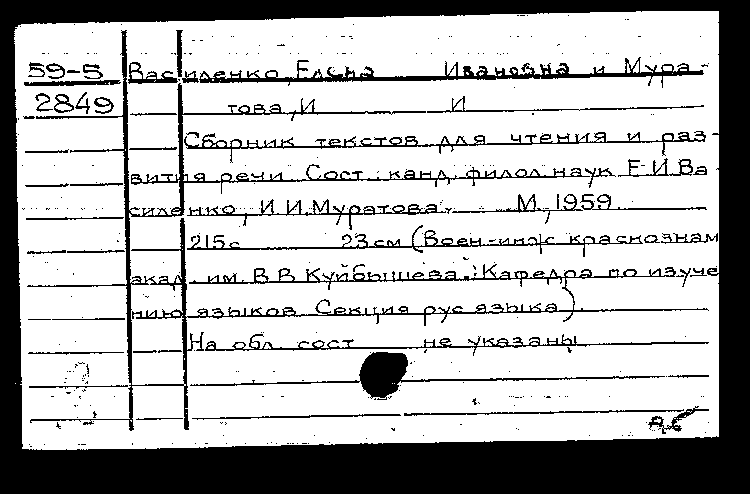 59-5 Василенко, Елена Ивановна и Мура-
2849 това, И И
Сборник текстов для чтения и раз-
вития речи. Сост.: канд. филол. наук Е.И. Ва-
силенко, И.И. Муратова. М., 1959.
215 с 23 см (Воен-инж краснознам
акад. им. В В Куйбышева. Кафедра по изуче
нию языков. Секция рус языка).
На обл. сост не указаны